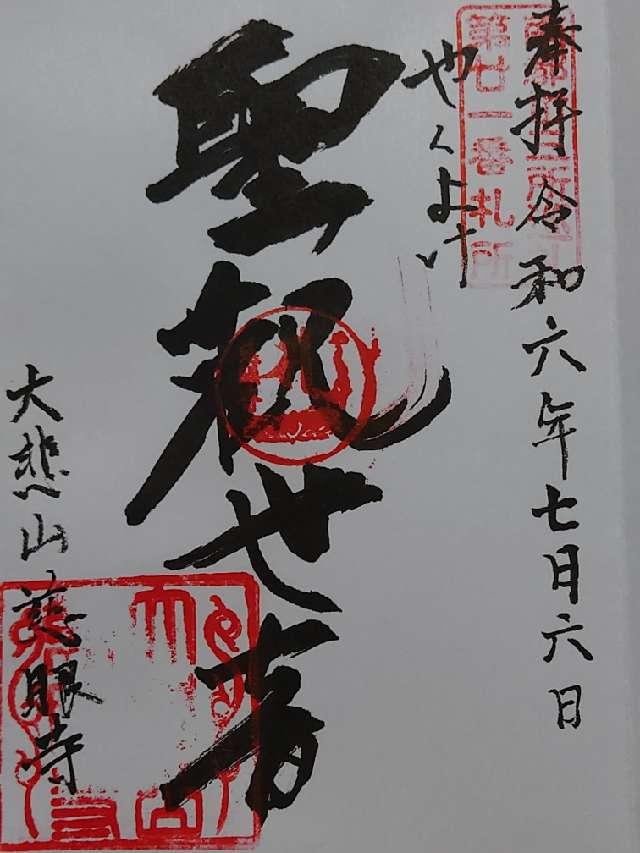 奉拝 令和六年七月六日
第廿一番札所
やくよけ
聖観世音
大悲山 慈眼寺